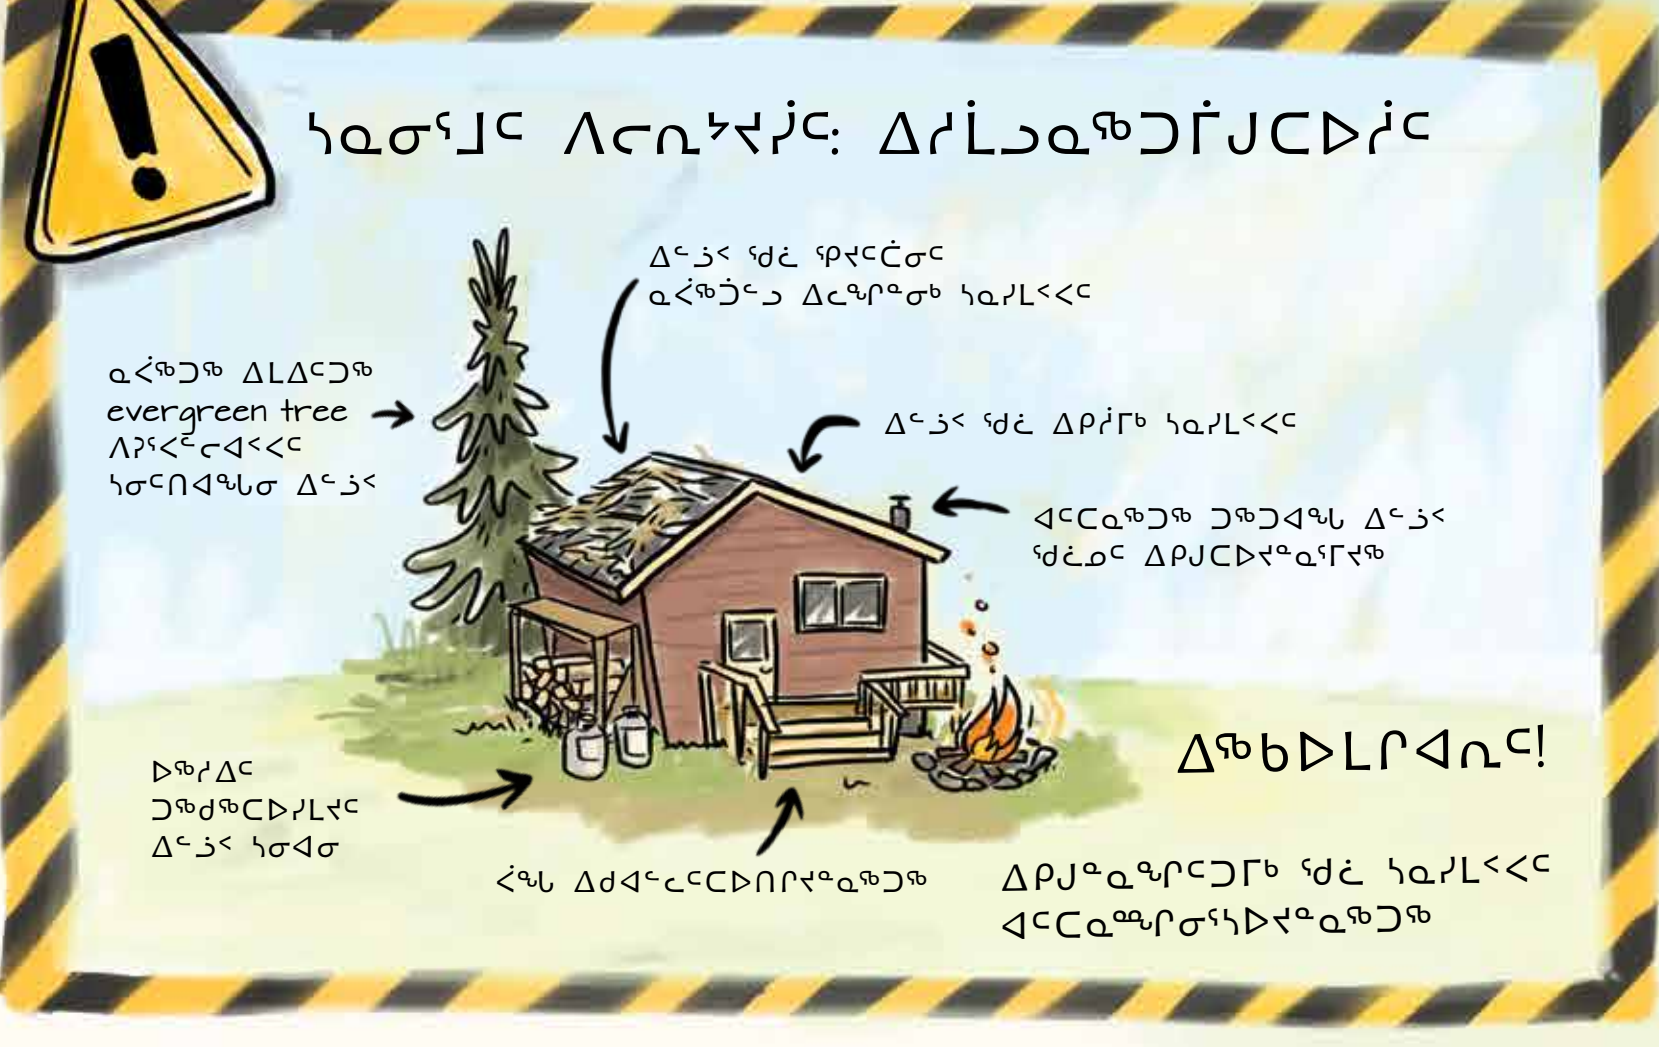 ᓴᓇᓂᕐᒧᑦ ᐱᓕᕆᔾᔪᓰᑦ: ᐃᓱᒫᓗᓇᖅᑐᒦᒍᑕᐅᓲᑦ
ᐃᓪᓘᑉ ᖁᓛ ᕿᔪᑦᑖᓂᑦ
ᓇᐹᖅᑑᓪᓗ ᐃᓚᖏᓐᓂᒃ ᓴᓇᓯᒪᑉᐸᑦ
ᓇᐹᖅᑐᖅ ᐃᒪᐃᑦᑐᖅ
evergreen tree
ᐱᕈᕐᐸᓪᓕᐊᑉᐸᑦ
ᓴᓂᑦᑎᐊᖓᓂ ᐃᓪᓘᑉ
ᐃᓪᓘᑉ ᖁᓛ ᐃᑭᓲᒥᒃ ᓴᓇᓯᒪᑉᐸᑦ
ᐊᑦᑕᓇᖅᑐᖅ ᑐᖅᑐᐊᖓ ᐃᓪᓘᑉ
ᖁᓛᓄᑦ ᐃᑭᒍᑕᐅᔪᓐᓇᕐᒥᔪᖅ
ᐃᖅᑲᐅᒪᒋᐊᕆᑦ!
ᐅᖅᓱᐃᑦ
ᑐᖅᑯᖅᑕᐅᓯᒪᔪᑦ
ᐃᓪᓘᑉ ᓴᓂᐊᓂ
ᐹᖓ ᐃᑯᐊᓪᓚᑦᑕᐅᑎᒋᔪᓐᓇᖅᑐᖅ
ᐃᑭᒍᓐᓇᖏᑦᑐᒥᒃ ᖁᓛ ᓴᓇᓯᒪᑉᐸᑦ
ᐊᑦᑕᓇᙱᓂᖅᓴᐅᔪᓐᓇᖅᑐᖅ